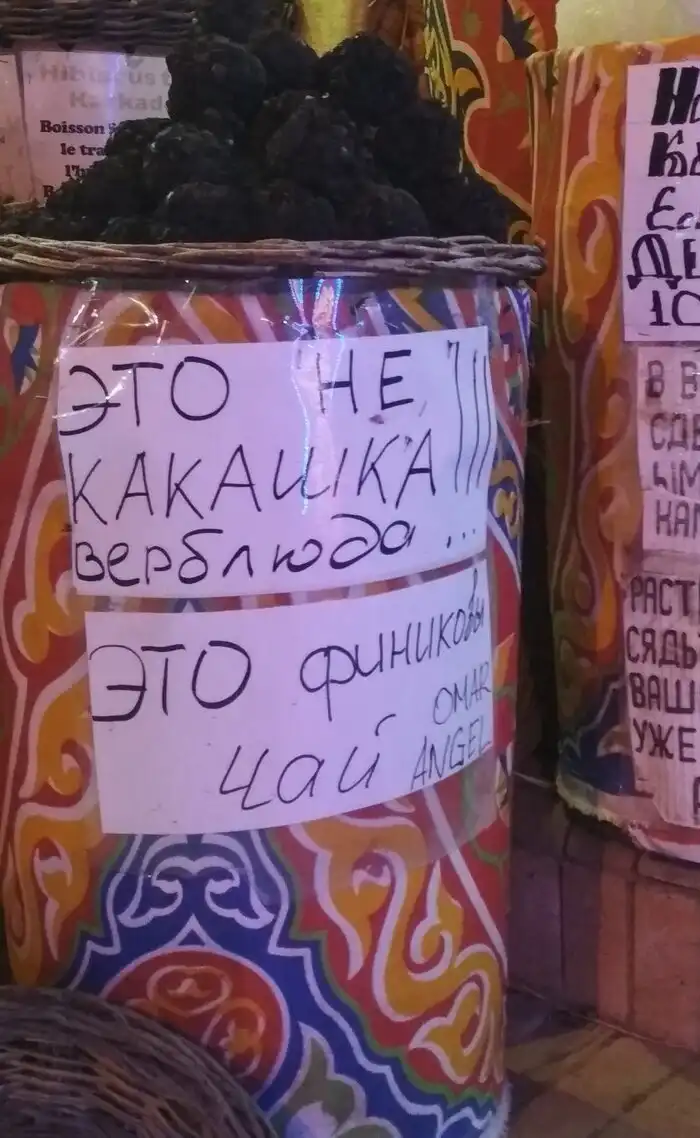 Hibiscus
Karkad
Boisson
le tra
ЭТО НЕ
КАКАШКА !!!
верблюда ...
ЭТО финиковы
чай
OMAR
ANGEL
10
В В
СДЕ
НАМ
РАСТ
СЯДЬ
ВАШ
УЖЕ